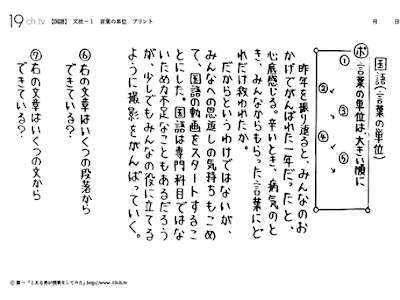 19ch.tv 【国語】 文法－1 言葉の単位 プリント
月 日
国語(言葉の単位)
ポ 言葉の単位は、大きい順に
① ② ③ ④ ⑤
昨年を振り返ると、みんなのお
かげでがんばれた一年だった、と、
心底感じる。辛いとき、病気のと
き、みんなからもらった言葉にど
れだけ救われたか。
だからというわけではないが、
みんなへの恩返しの気持ちもこめ
て、国語の動画をスタートするこ
とにした。国語は専門科目ではな
いため力不足なこともあるだろう
が、少しでもみんなの役に立てる
ように撮影をがんばっていく。
⑥右の文章はいくつの段落から
できている？
⑦右の文章はいくつの文から
できている？
Ⓒ 葉一 「とある男が授業をしてみた」 http://www.19ch.tv